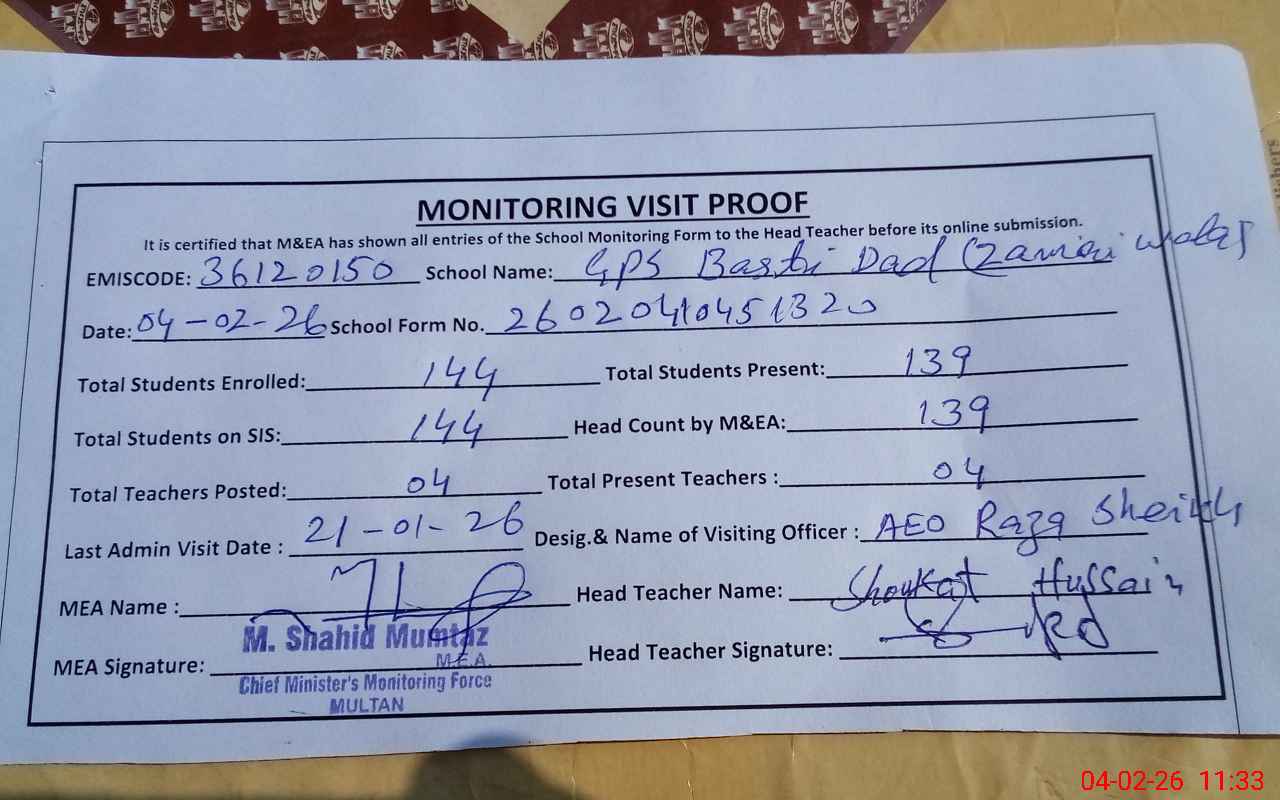 MONITORING VISIT PROOF
It is certified that M&EA has shown all entries of the School Monitoring Form to the Head Teacher before its online submission.
EMISCODE: 36120150 School Name: GPS Basti Dad (Zamari wala)
Date: 04-02-26 School Form No. 26020410451320
Total Students Enrolled: 144 Total Students Present: 139
Total Students on SIS: 144 Head Count by M&EA: 139
Total Teachers Posted: 04 Total Present Teachers : 04
Last Admin Visit Date : 21-01-26 Desig.& Name of Visiting Officer : AEO Raza Sheikh
MEA Name : Head Teacher Name: Shoukat Hussain
M. Shahid Mumtaz
MEA Signature: M.E.A. Head Teacher Signature:
Chief Minister's Monitoring Force
MULTAN
04-02-26 11:33